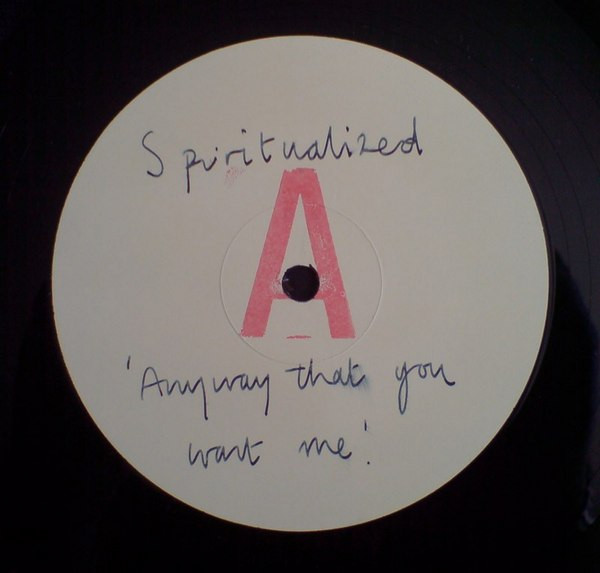 Spiritualized
A
'Anyway that you
want me'.